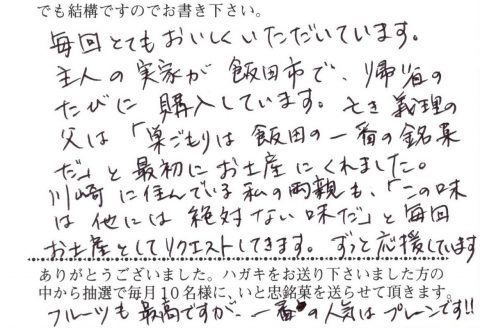 でも結構ですのでお書き下さい。
毎回とてもおいしくいただいています。
主人の実家が飯田市で、帰省の
たびに購入しています。亡き義理の
父は「巣ごもりは飯田の一番の銘菓
だ」と最初にお土産にくれました。
川崎に住んでいる私の両親も、「この味
は他には絶対ない味だ」と毎回
お土産としてリクエストしてきます。ずっと応援しています
ありがとうございました。ハガキをお送り下さいました方の
中から抽選で毎月10名様に、いと忠銘菓を送らせて頂きます。
フルーツも最高ですが、一番の人気はプレーンです!!